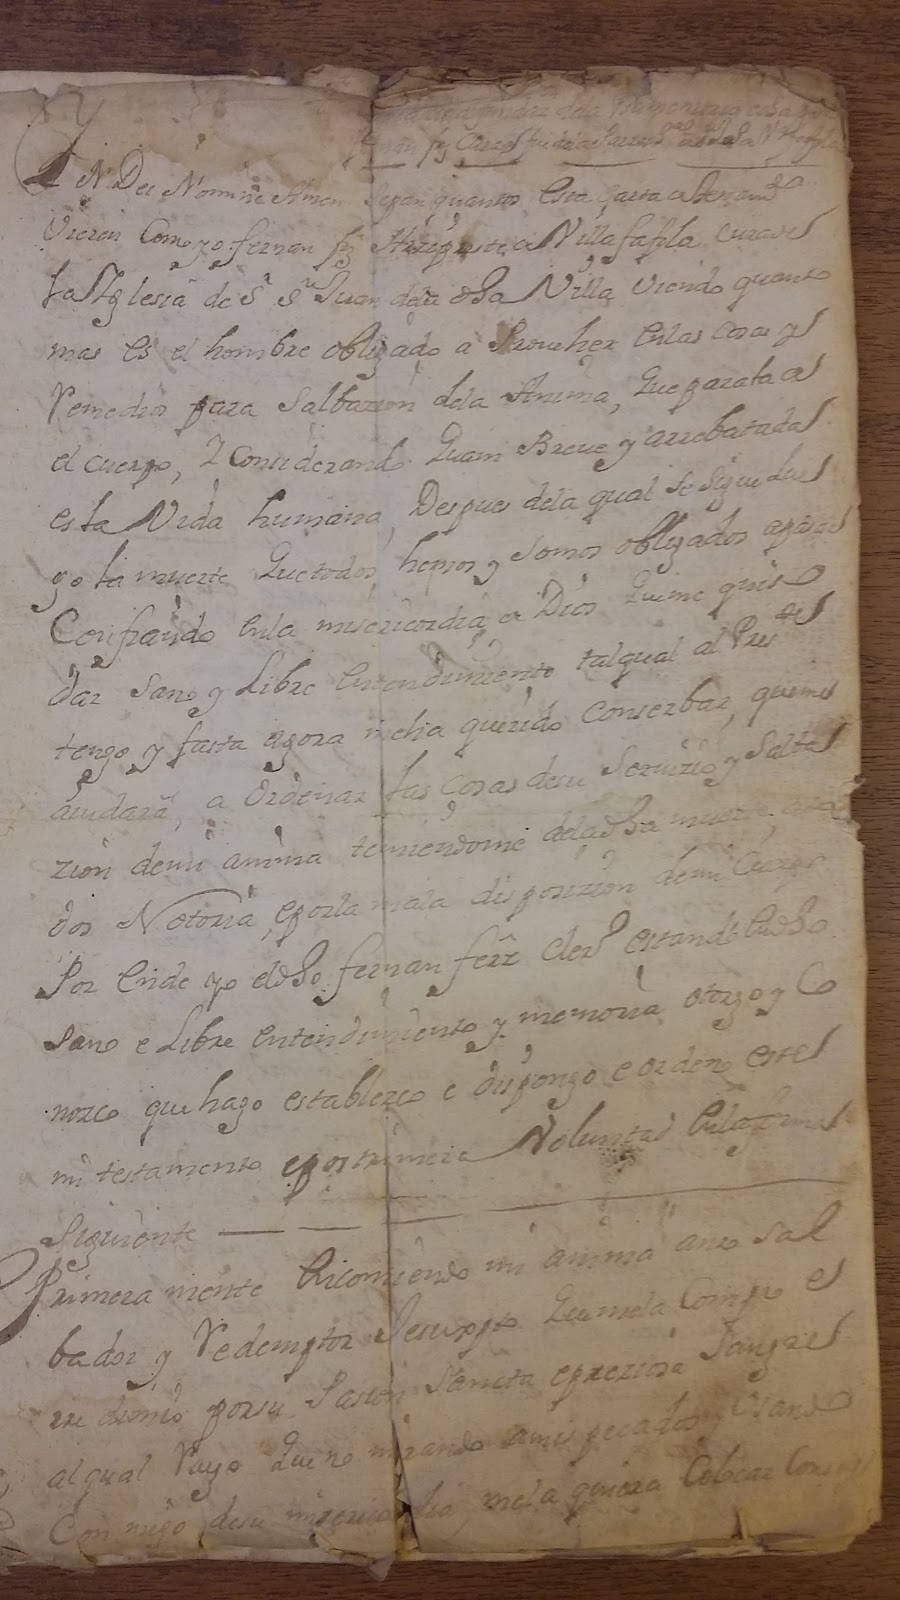 fundaz.on dela
fernan frz
IN Dei Nomine Amen Sepan quantos esta Carta de
Vieren Como yo fernan frz Arzipreste de Villafafila cura de
la Yglesia de Sr Sn Juan dela dha Villa Viendo quanto
mas es el hombre obligado a Proueher enlas cosas y
Remedios para Salbazion dela Anima, que para la de
el cuerpo, y Considerando quam Breue y arrebatada
es la Vida humana, Despues dela qual se sigue luego
yo la muerte que todos hemos y somos obligados a pasar
Confiando enla misericordia de Dios que me quiso
dar sano y Libre entendimiento tal qual al Preste
tengo y fasta agora me lo ha querido Conserbar, que me
aiudara, a ordenar las cosas de su Seruizio y Salba
zion de mi anima temiendome dela dha muerte,
dos Notoria, e por la mala disposizion de mi Cuerpo
Por ende yo el dho fernan ferrz Clero estando en dho
sano e Libre entendimiento y memoria otorgo y Co
nozco que hago establezco e dispongo e ordeno este
mi testamento e postrimera Voluntad enla forma
Siguiente
Primeramente encomiendo mi anima a nro Sal
bador y Redemptor Jesuxpto que me la Compro e
redimio por su Pasion Sancta e preziosa Sangre
al qual Ruego que no mirando a mis pecados, Vsando
Conmigo de su misericordia, me la quiera Colocar